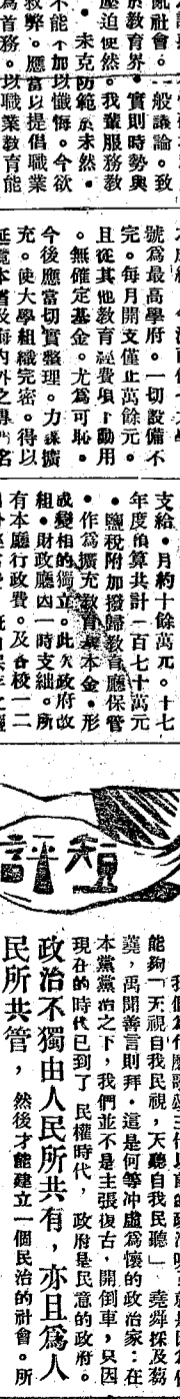 亂社會。一般議論。致
於教育界。實則時勢與
壓迫使然。我輩服務教
。未克防範於未然。
不能不加以懺悔。今欲
救弊。應當以提倡職業
為首務。以職業教育能
號為最高學府。一切設備不
完。每月開支僅止萬餘元。
且從其他教育經費項下動用
。無確定基金。尤為可恥。
今後應當切實整理。力謀擴
充。使大學組織完密。得以
延攬本省及海內外之專門名
支給。月約十餘萬元。十七
年度預算共計一百七十萬元
。鹽稅附加撥歸教育廳保管
。作為擴充教育基本金。形
成變相的獨立。此次政府改
組。財政廳因一時支絀。所
有本廳行政費。及各校一二
短評
能夠「天視自我民視,天聽自我民聽」堯舜採及芻
蕘,禹聞善言則拜。這是何等冲虛為懷的政治家:在
本黨黨治之下,我們並不是主張復古,開倒車,只因
現在的時代已到了民權時代,政府是民意的政府。
政治不獨由人民所共有,亦且為人
民所共管,然後才能建立一個民治的社會。所